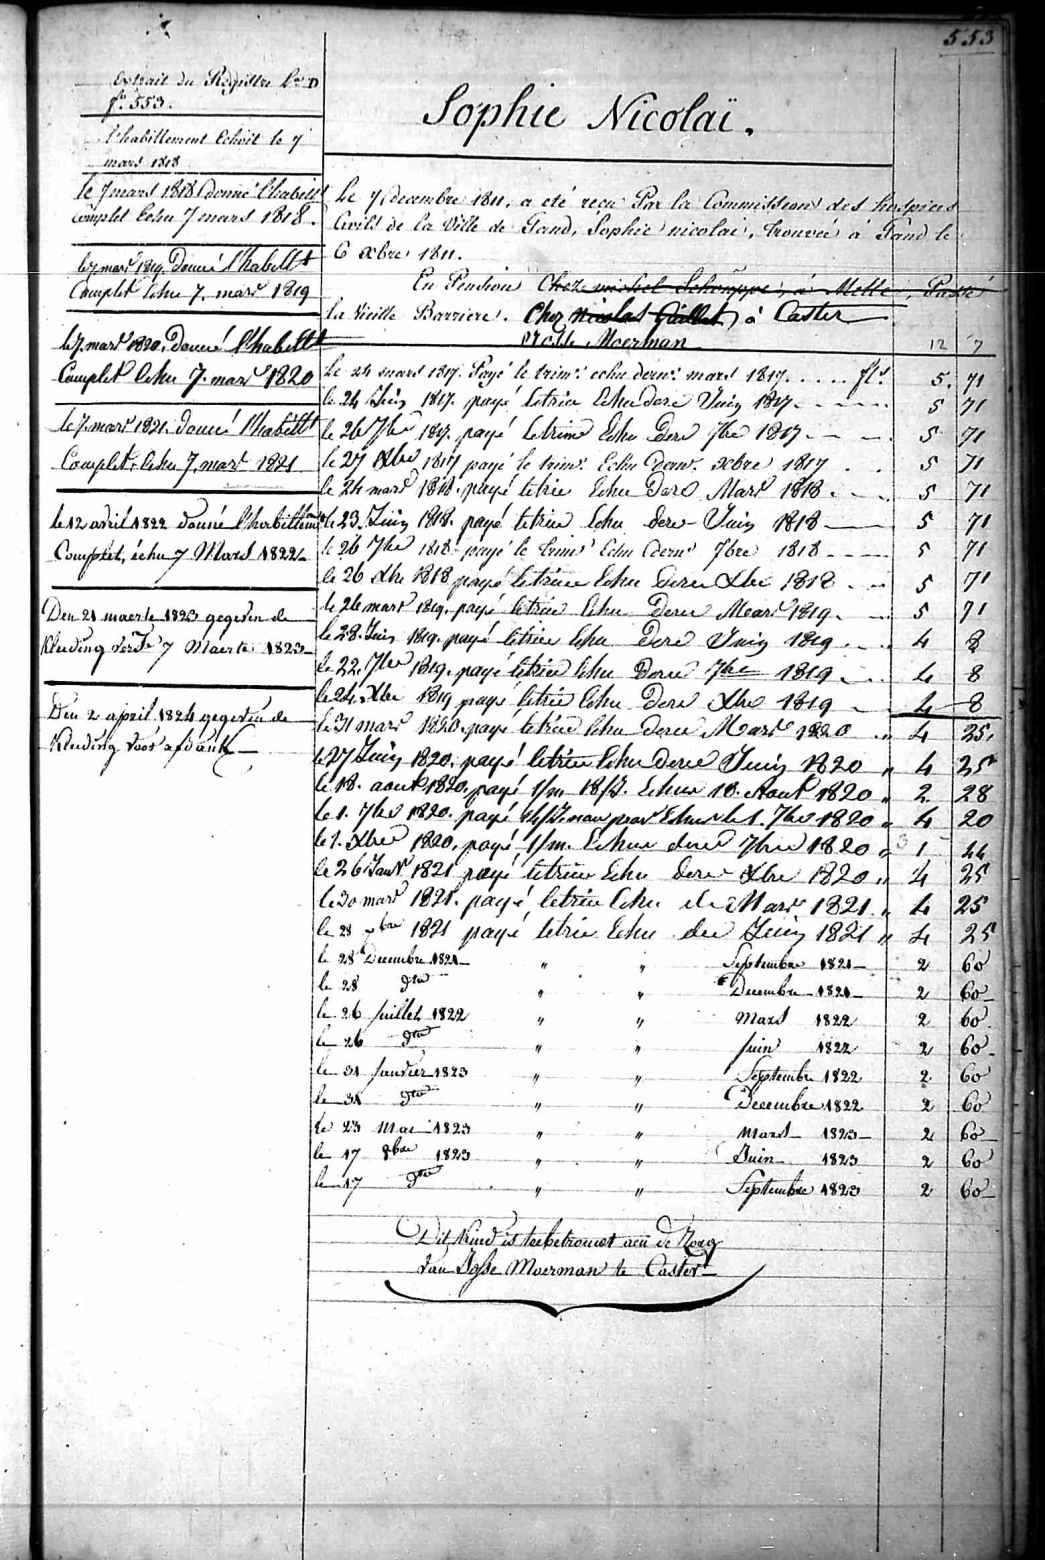 553
Extrait du Registre L^re D
f° 553.
l'habillement Echoit le 7
mars 1818
le 7 mars 1818 donné l'habill^t
Complet Echu 7 mars 1818.
le 7 mars 1819. Donné l'habill^t
Complet Echu 7. mars 1819
le 7. mars 1820. Donné l'habill^t
Complet Echu 7. mars 1820
le 7. mars 1821. donné l'habill^t
Complet. Echu 7. mars 1821
le 12 avril 1822 donné l'habillem^t
Complet, échu 7 Mars 1822
Den 21 maerte 1823 gegeven de
Kleeding 7 Maerte 1823
Den 2 april 1824 gegeven de
Kleeding voor afdank
Sophie Nicolaï.
Le 7 decembre 1811. a eté reçu Par la Commission des hospices
Civils de la Ville de Gand, Sophie nicolai, trouvée a Gand le
6 xbre 1811.
En Pension Chez michel à Melle, Passé
la Vieille Barriere. Chez Nicolas Gaillet, à Caster
Moerman
12 7
Le 24 mars 1817. Payé le trim^e echu dern^r mars 1817 ..... fl^s 5. 71
le 24 Juin 1817. payé letrim Echu dere Juin 1817 5 71
le 26 7bre 1817. payé letrim Echu Dere 7bre 1817 5 71
le 27 Xbre 1817 payé le trim^e. Echu Dern^r. xbre 1817 5 71
le 24 mars 1818. payé letrim Echu Dere Mars 1818 5 71
le 23. Juin 1818. payé letrim Echu dere Juin 1818 5 71
le 26 7bre 1818 payé le trim^e Echu dern^r 7bre 1818 5 71
le 26 Xbre 1818 payé letrim Echu dere Xbre 1818 5 71
le 26 mars 1819. payé letrim Echu Dere Mars 1819 5 71
le 28. Juin 1819. payé letrim Echu Dere Juin 1819 4 8
le 22. 7bre 1819. payé letrim Echu Dere 7bre 1819 4 8
le 24. Xbre 1819 payé letrim Echu Dere Xbre 1819 4 8
le 31 mars 1820. payé letrim Echu dere Mars 1820 " 4 25.
le 27 Juin 1820. payé letrim Echu dere Juin 1820 " 4 25
le 18. aout 1820. payé 1/m 18/J. Echu 18. Aout 1820 " 2. 28
le 1. 7bre 1820. payé Echu le 1. 7bre 1820 " 4 20
le 1. Xbre 1820. payé 1/m. Echu dere 7bre 1820 " 1 44
le 26 Janv^r 1821 payé letrim Echu dere Xbre 1820 " 4 25
le 30 mars 1821. payé letrim Echu de Mars 1821 " 4 25
le 28 bre 1821 payé letrim Echu de Juin 1821 " 4 25
le 28 Decembre 1821 " " Septembre 1821 2 60
le 28 dto " " Decembre 1821 2 60
le 26 juillet 1822 " " Mars 1822 2 60
le 26 dto " " juin 1822 2 60
le 31 janvier 1823 " " Septembre 1822 2 60
le 31 dto " " Decembre 1822 2 60
le 23 Mai 1823 " " Mars 1823 2 60
le 17 8bre 1823 " " Juin 1823 2 60
le 17 dto " " Septembre 1823 2 60
Dit Kind is toebetrouwt aen de Zorg
van Josse Moerman te Caster